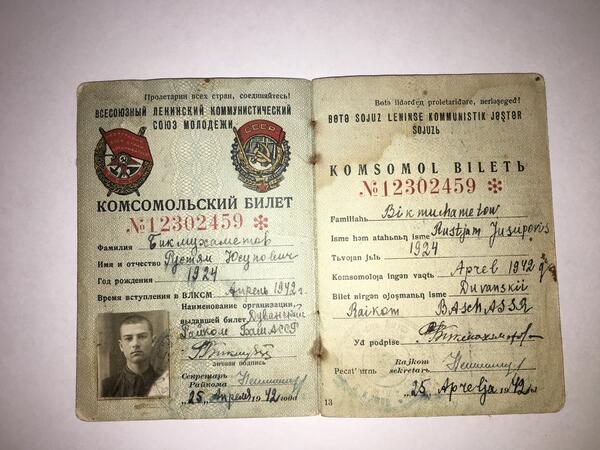 Пролетарии всех стран, соединяйтесь!
ВСЕСОЮЗНЫЙ ЛЕНИНСКИЙ КОММУНИСТИЧЕСКИЙ
СОЮЗ МОЛОДЕЖИ
СССР
КОМСОМОЛЬСКИЙ БИЛЕТ
№12302459 *
Фамилия Бикмухаметов
Имя и отчество Рустям Юсупович
Год рождения 1924
Время вступления в ВЛКСМ Апрель 1942 г.
Наименование организации,
выдавшей билет Дуванский
Райком БашАССР
Личная подпись
Секретарь
Райкома
„25„ Апреля 1942 года
Bөtə ildərden proletaridəre, berləşeged!
BөTə SOJUZ LENINSE KOMMUNISTIK JəŞTəR
SOJUZЬ
KOMSOMOL BILETЬ
№12302459 *
Familiahь Bikmuhametow
Isme həm atahьnьꞑ isme Rustjam Jusupovis
Tьvoƣan jьlь 1924
Komsomolƣa ingən vaqtь Aprel 1942
Bilet birgən ojoşmanьꞑ isme Duvanskii
Raikom BaschASSR
Yđ podpise
Rajkom
sekretarь
„25„ Aprelja 1942
13